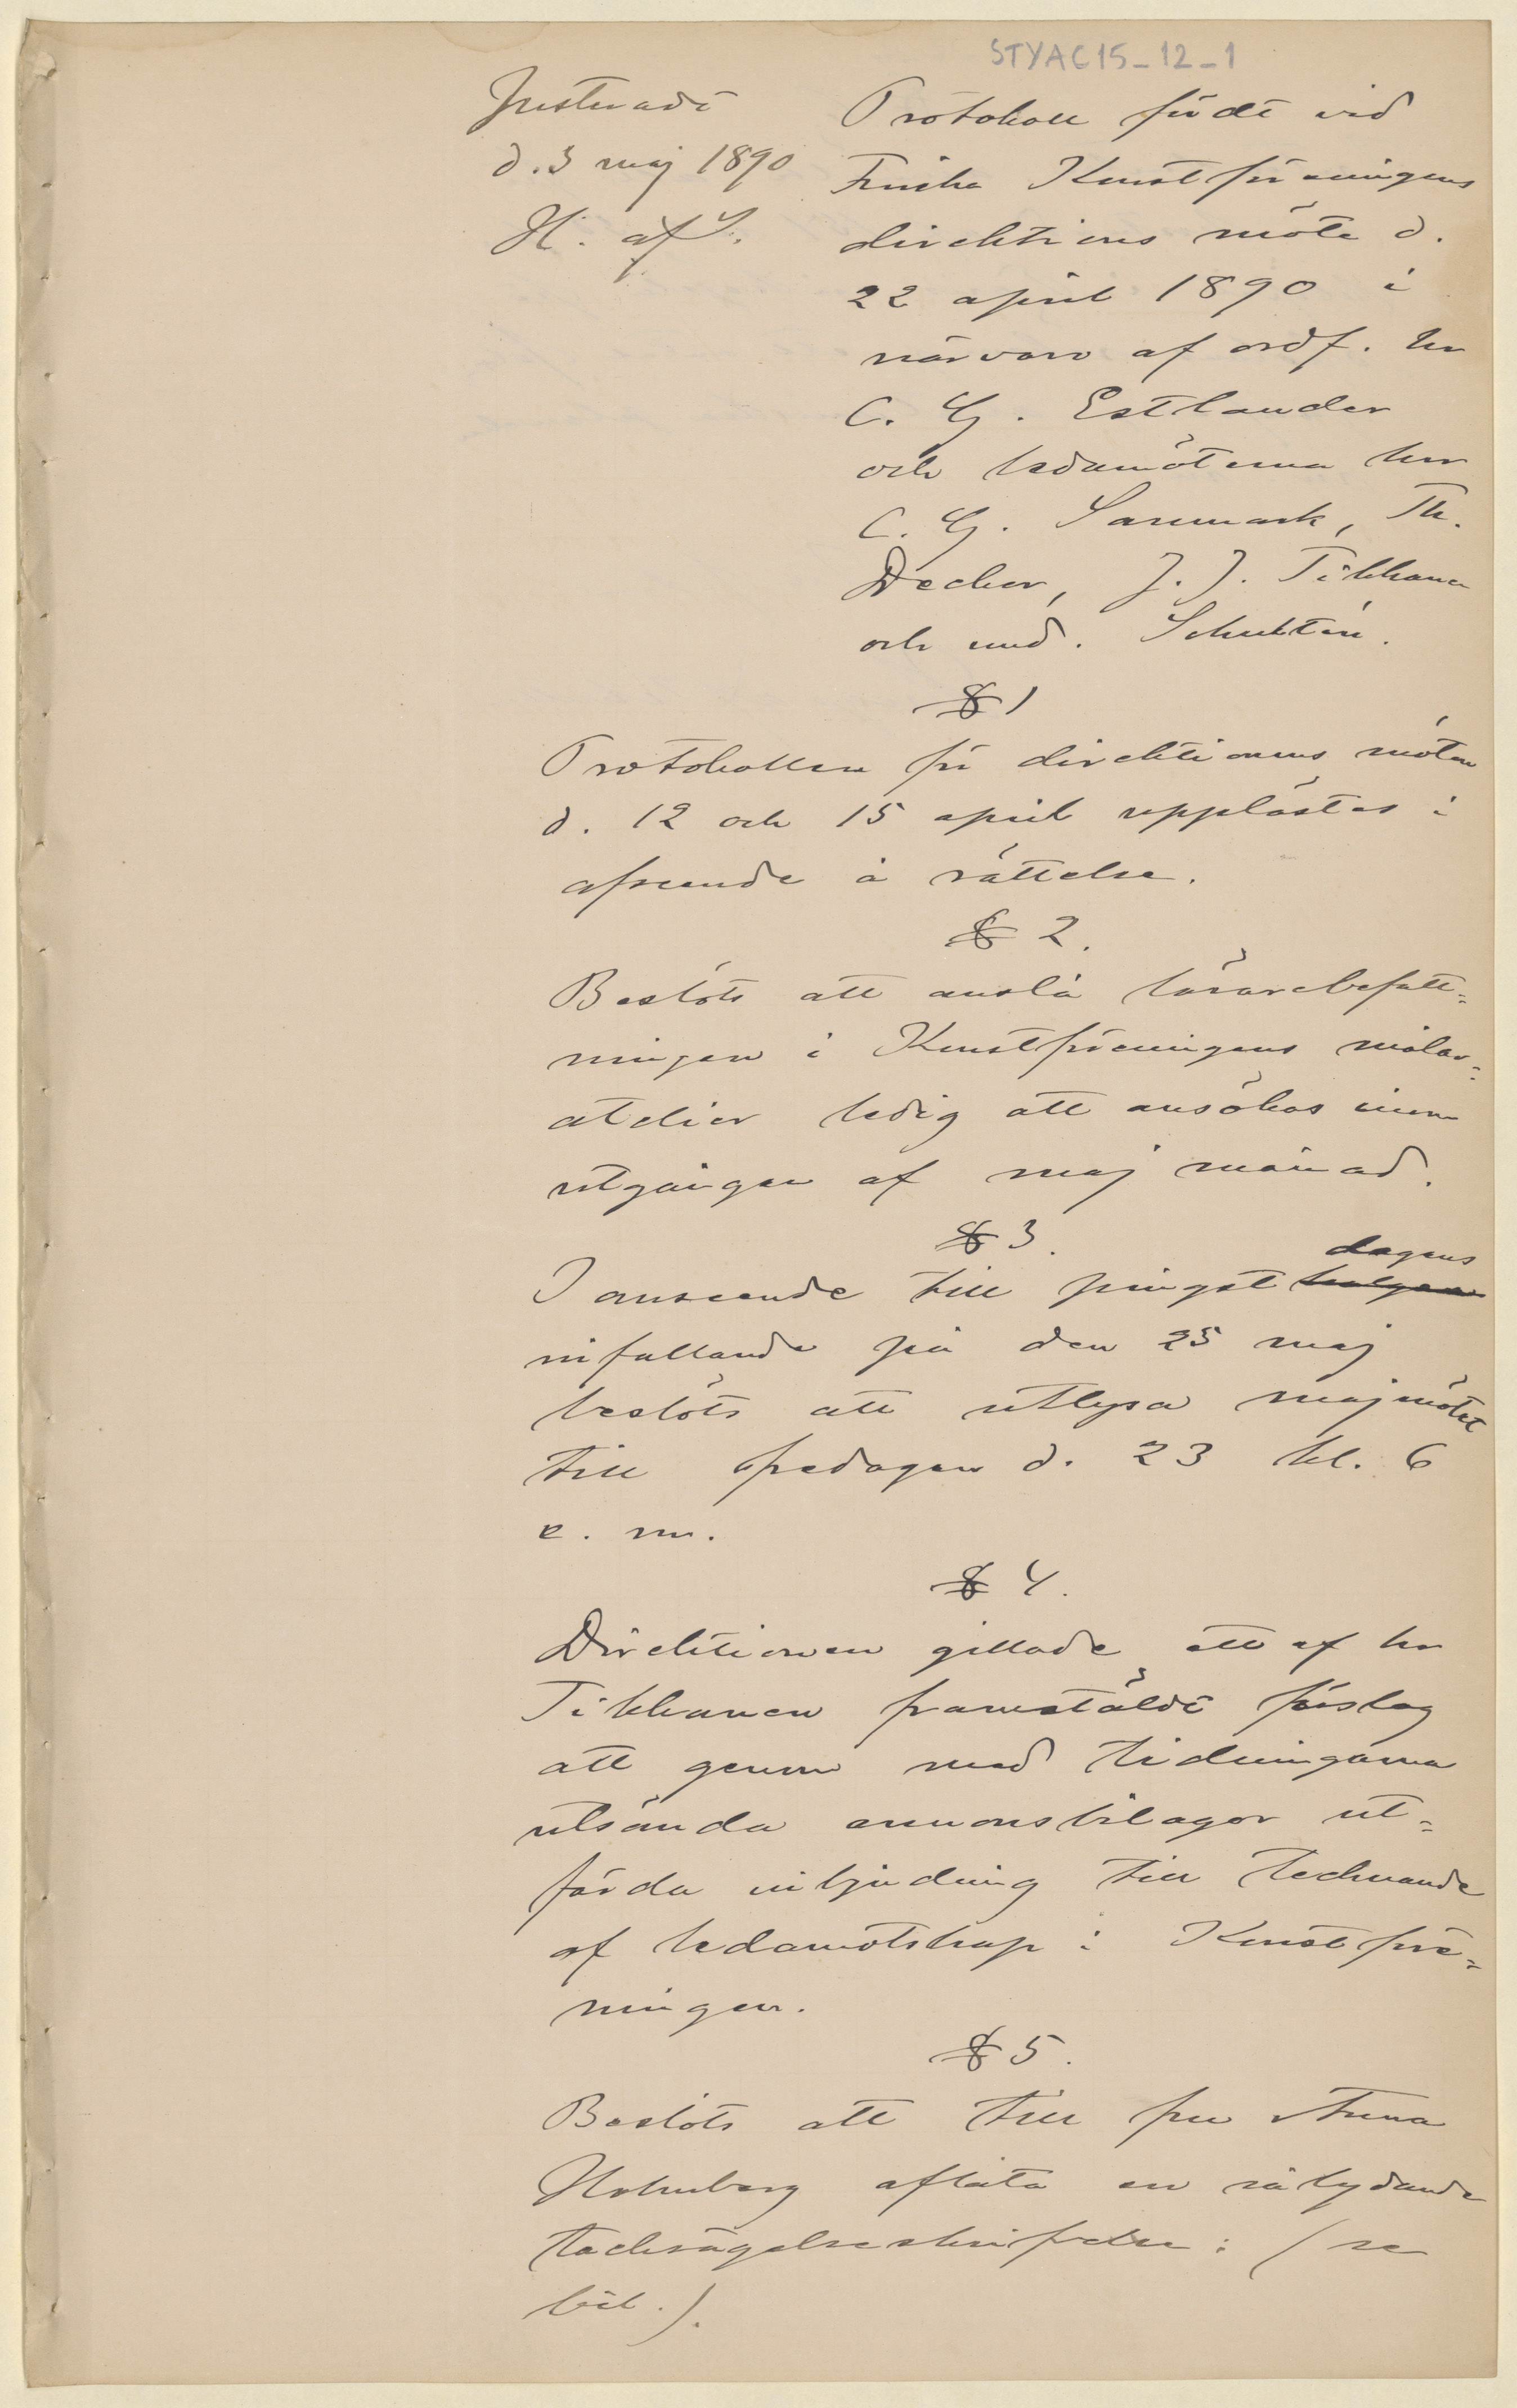 STYAC15_12_1
Justeradt
d. 3 maj 1890
H. af S.
Protokoll fördt vid
Finska Konstföreningens
direktions möte d.
22 april 1890 i
närvaro af ordf. hr
C. G. Estlander
och ledamöterna hrr
C. G. Sanmark, Th.
Decker, J. J. Tikkanen
och und. Schultén.
§ 1
Protokollen för direktionens möten
d. 12 och 15 april upplästes i
afseende å rättelse.
§ 2.
Beslöts att anslå lärarebefatt-
ningen i Konstföreningens målar-
atelier ledig att ansökas inom
utgången af maj månad.
§ 3.
dagens
I anseende till pingst helgen
infallande på den 25 maj
beslöts att utlysa majmötet
till fredagen d. 23 kl. 6
e. m.
§ 4.
Direktionen gillade ett af hr
Tikkanen framstäldt förslag
att genom med tidningarna
utsända annonsbilagor ut-
färda inbjudning till tecknande
af ledamotskap i Konstföre-
ningen.
§ 5.
Beslöts att till fru Anna
Holmberg aflåta en så lydande
tacksägelseskrifvelse: (se
bil.).